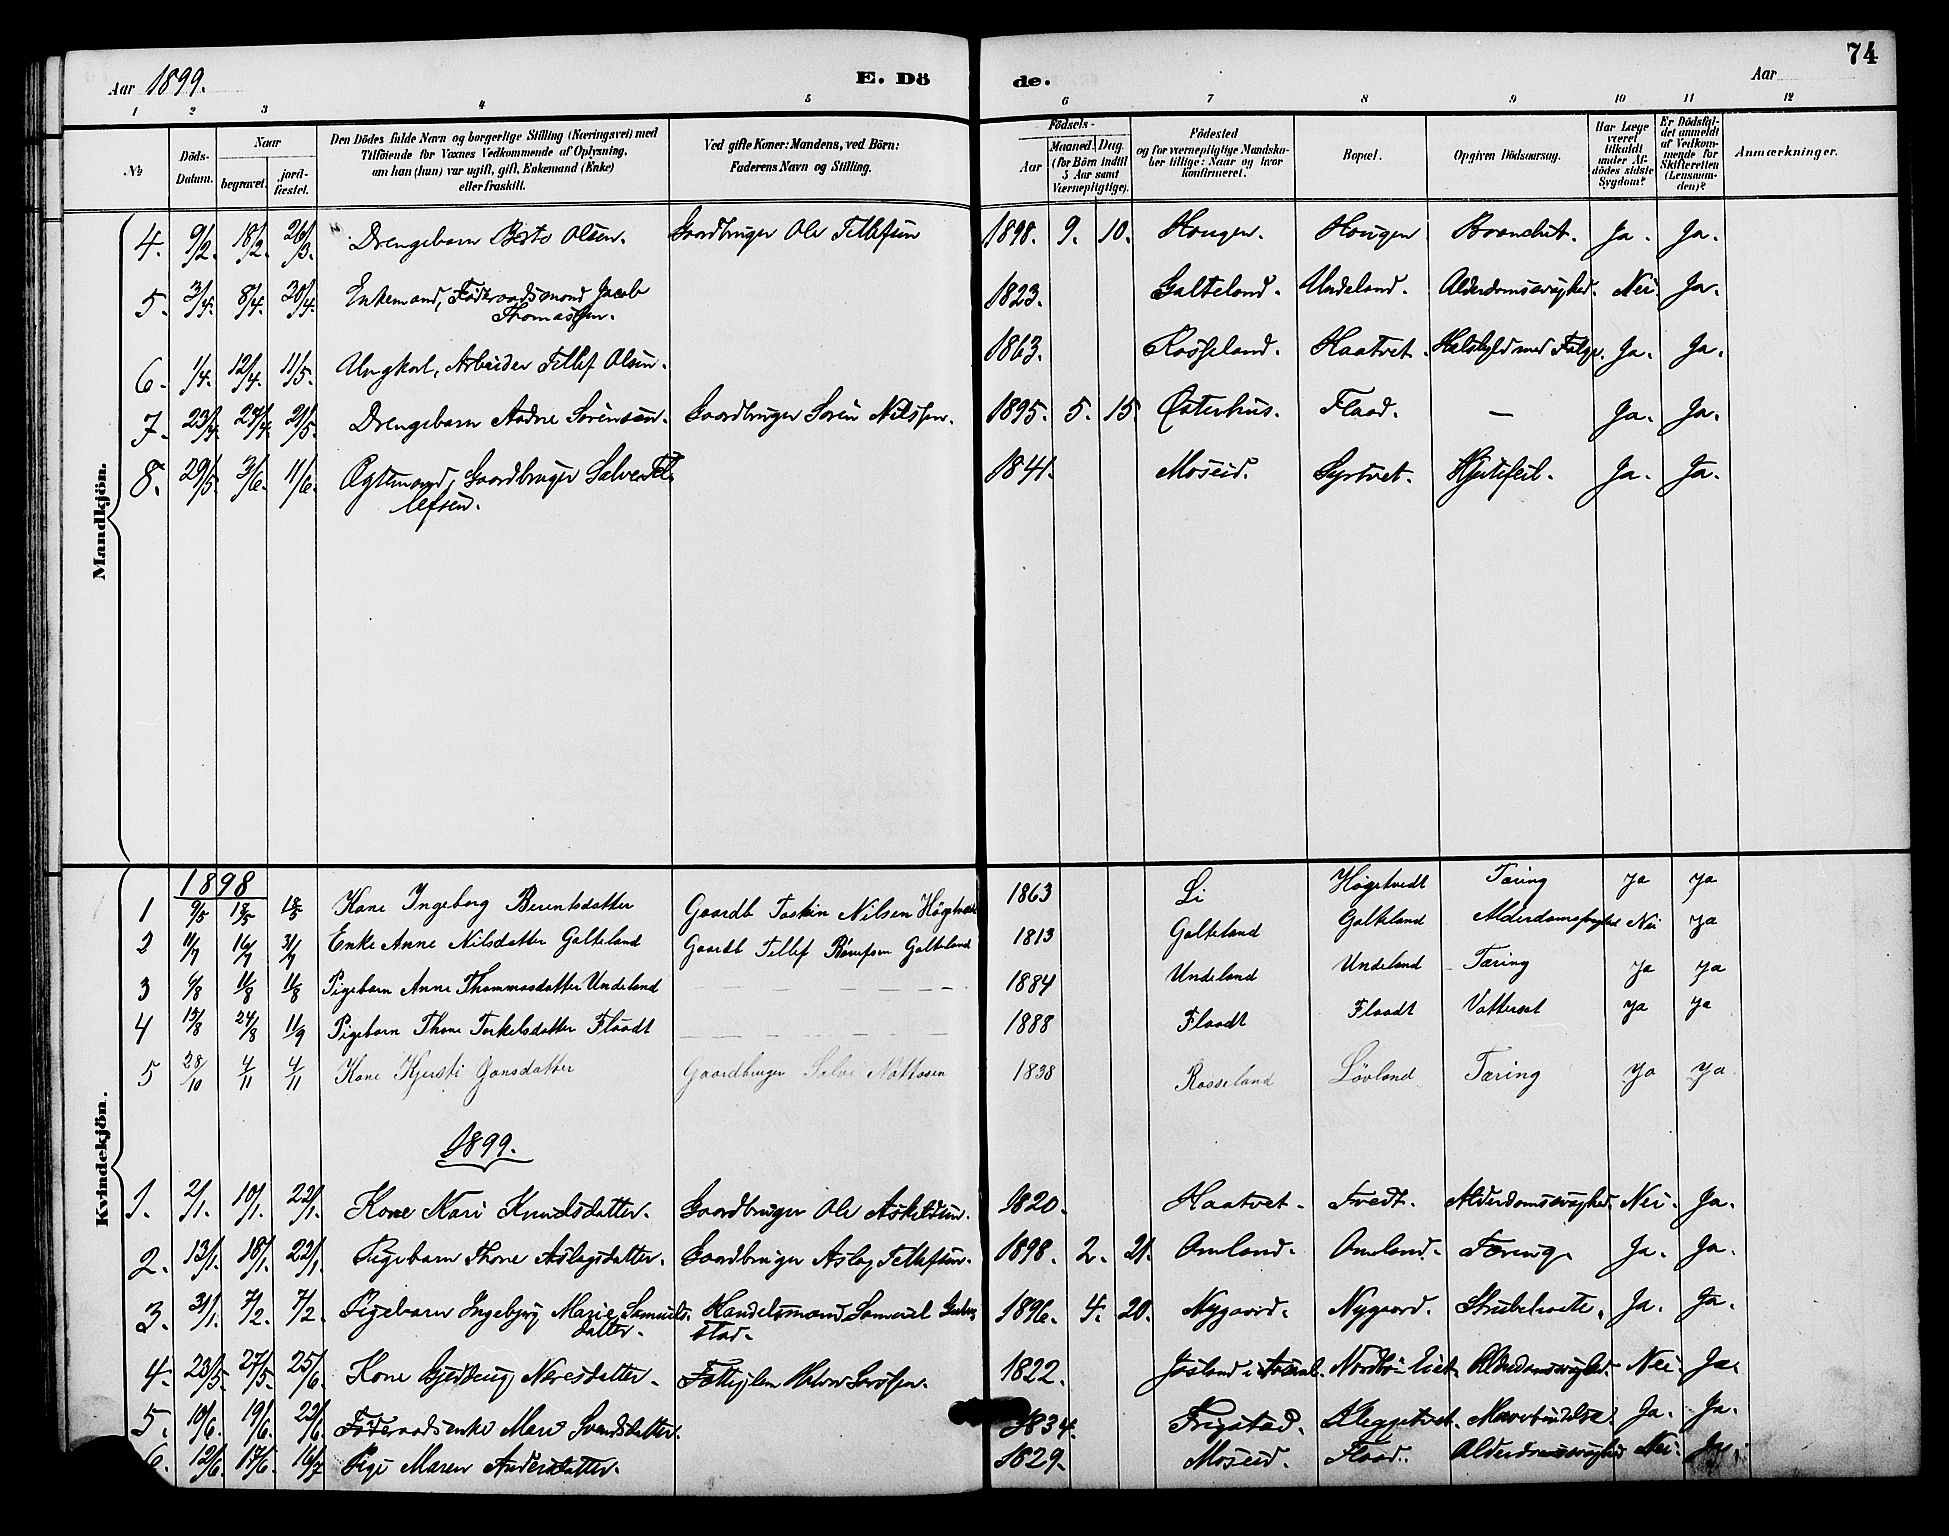 74
Aar 1899. E. Dö de. Aar
1 2 3 4 5 6 7 8 9 10 11 12
№ Döds-Datum. Naar begravet. jord-fæstet. Den Dödes fulde Navn og borgerlige Stilling (Næringsvei) med Tilföiende for Voxnes Vedkommende af Oplysning, om han (hun) var ugift, gift, Enkemand (Enke) eller fraskilt. Ved gifte Koner: Mandens, ved Börn: Faderens Navn og Stilling. Födsels- Aar Maaned. Dag. (for Börn indtil 5 Aar samt Værnepligtige). Födested og for værnepligtige Mandska-ber tillige: Naar og hvor konfirmeret. Bopæl. Opgiven Dödsaarsag. Har Læge været tilkaldt under Af-dödes sidste Sygdom? Er Dödsfal-det anmeldt af Vedkom-mende for Skifteretten (Lensman-den)? Anmærkninger.
Mandkjön.
4. 9/2. 18/2. 26/3. Drengebarn Olsen. Gaardbruger Ole Tellefsen 1898. 9. 10. Hougen. Hougen Ja. Ja.
5. 3/4. 8/4. 20/4. Enkemand, Föderaadsmand Jacob 1823. Galteland. Undeland. Alderdomssvaghed. Nei. Ja.
Thomassen.
6. 1/4. 12/4. 11/5. Ungkarl, Arbeider Tellef Olsen. 1863. Rosseland. Haatvet. Halsbyld med Følge. Ja. Ja.
7. 23/4. 27/4. 21/5. Drengebarn Aadne Sörensen. Gaardbruger Sören Nilssen. 1895. 5. 15. Østerhus. Flaad. — Ja. Ja.
8. 29/5. 3/6. 11/6. Ægtemand, Gaardbruger Salve Tel- 1841. Moseid. Syrtvet. Hjertefeil. Ja. Ja.
lefsen.
Kvindekjön.
1898
1 9/5 18/5 18/5 Kone Ingeborg Berentsdatter Gaardb Taskin Nilsen Högetvedt 1863 Li Högetvedt Tæring ja ja
2 11/7 16/7 31/7 Enke Anne Nilsdatter Galteland Gaardb Tellef Galteland 1813 Galteland Galteland Alderdomssvaghed Nei ja
3 6/8 11/8 11/8 Pigebarn Anne Thommasdatter Undeland — — — 1884 Undeland Undeland Tæring ja ja
4 15/8 24/8 11/9 Pigebarn Thone Torkelsdatter Flaadt — — — 1888 Flaadt Flaadt Vattersot ja ja
5 28/10 4/11 4/11 Kone Kjersti Gonsdatter Gaardbruger Selve Nottosen 1838 Rosseland Lövland Tæring ja ja
1899.
1. 2/1. 10/1. 22/1. Kone Kari Knudsdatter. Gaardbruger Ole Askildsen. 1820. Haatvet. Tvedt. Alderdomssvaghed. Nei. Ja.
2. 13/1. 18/1. 22/1. Pigebarn Thone Aslagsdatter. Gaardbruger Aslag Tellefsen. 1898. 2. 21. Omland. Omland. Tæring. Ja. Ja.
3. 31/1. 7/2. 7/2. Pigebarn Ingebjørg Marie Samuels- Handelsmand Samuel 1896. 4. 20. Nygaard. Nygaard. Strubehoste. Ja. Ja.
datter. stad.
4. 23/5. 27/5. 25/6. Kone Neresdatter. Halvor 1822. Josland i Nordbö-Eiet. Alderdomssvaghed. Nei. Ja.
5. 10/6. 19/6. 22/6. Föderaadsenke Mari Svendsdatter. 1834. Frigstad. Kleggetvet. Ja. Ja.
6. 12/6. 17/6. 16/7. Pige Maren Andersdatter. 1829. Moseid. Flaad. Alderdomssvaghed Nei. Ja.